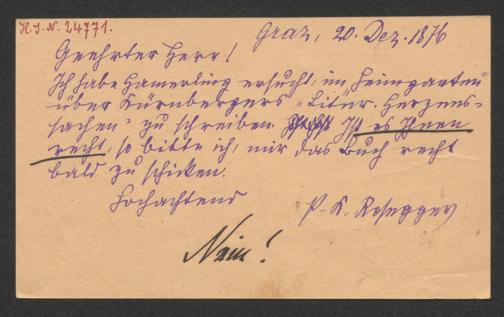 H.I.N. 24771.
Graz, 20. Dez. 1876
Geehrter Herr!
Ich habe Hamerling ersucht, im „Heimgarten"
über Kürnbergers „Litter. Herzens-
sachen" zu schreiben. Ist es Ihnen
recht, so bitte ich, mir das Buch recht
bald zu schicken.
Hochachtend
P. K. Rosegger
Nein!